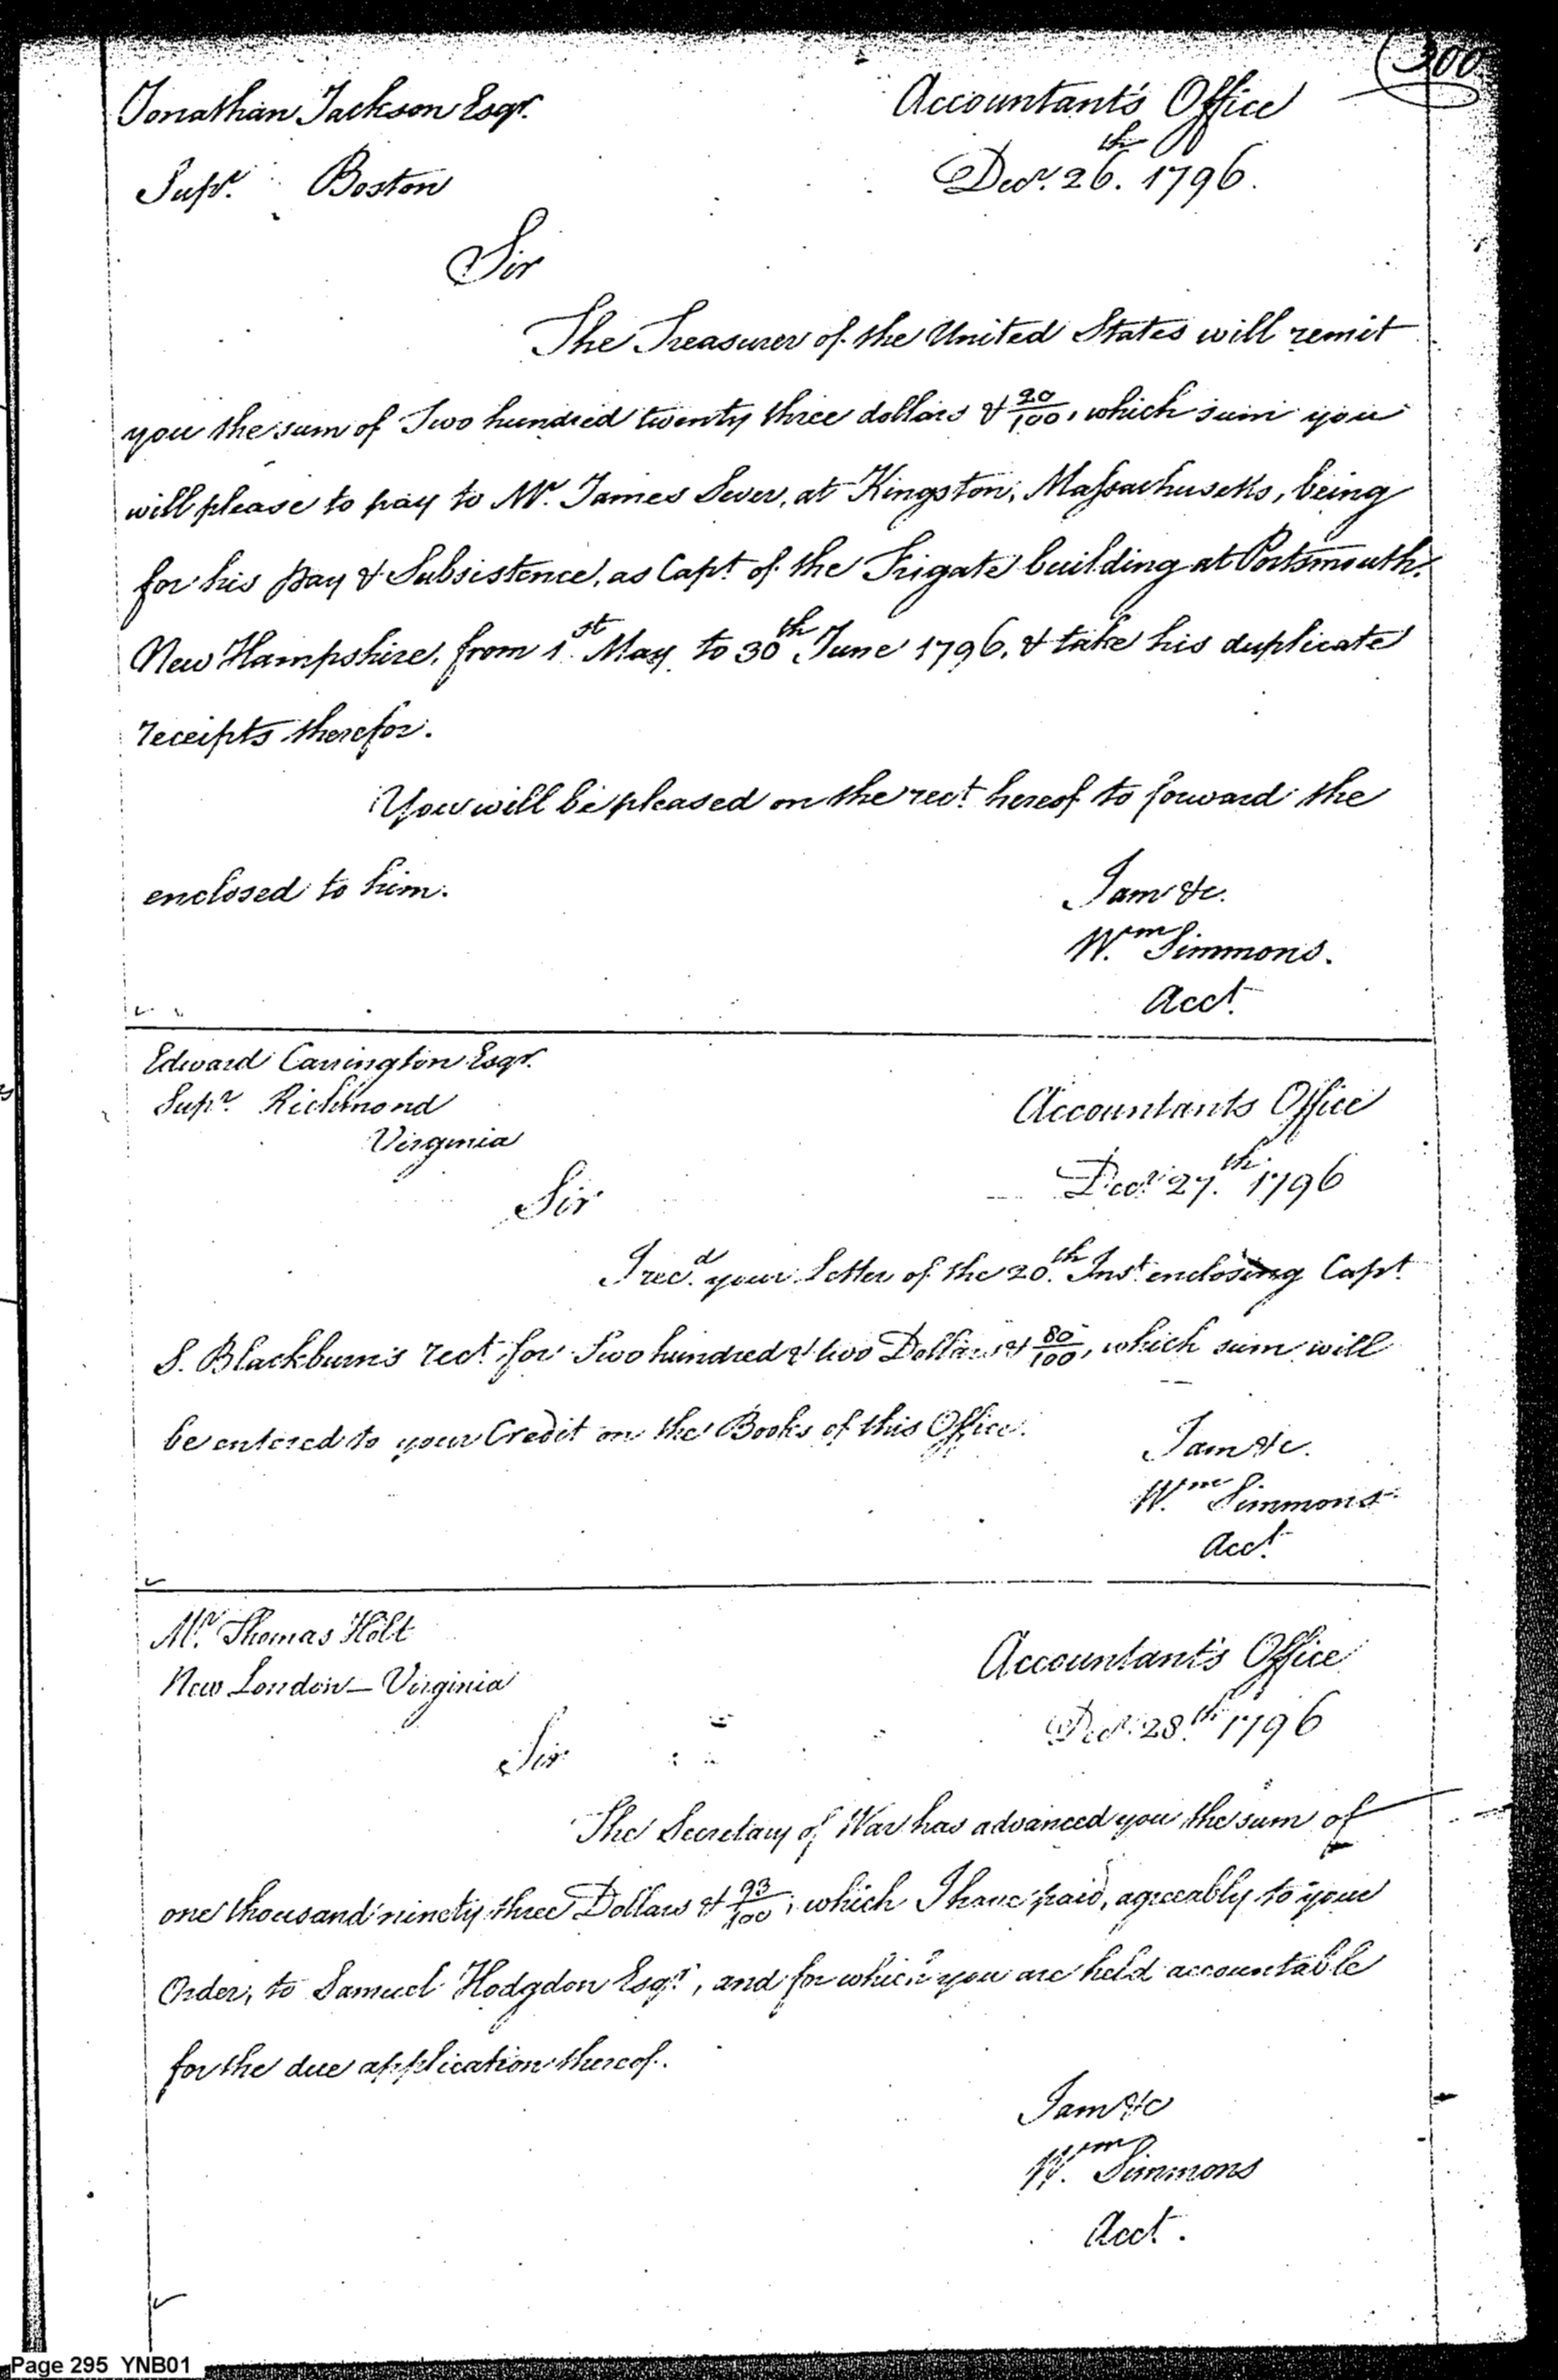 300
Jonathan Jackson Esqr.
Supr. Boston
Accountant's Office
Decr. 26th. 1796.
Sir
The Treasurer of the United States will remit
you the sum of Two hundred twenty three dollars & 20/100, which sum you
will please to pay to Mr. James Sever, at Kingston, Massachusetts, being
for his pay & Subsistence, as Capt. of the Frigate building at Portsmouth.
New Hampshire, from 1st. May to 30th June 1796. & take his duplicate
receipts therefor.
You will be pleased on the rect. hereof to forward the
enclosed to him.
I am &c.
Wm. Simmons.
Acct.
Edward Carrington Esqr.
Supr. Richmond
Virginia
Accountants Office
Decr. 27th. 1796
Sir
I recd. your Letter of the 20th. Inst. enclosing Capt.
S. Blackburn's rect. for Two hundred & two Dollars & 80/100, which sum will
be entered to your Credit on the Books of this Office.
I am &c.
Wm. Simmons
Acct.
Mr. Thomas Holt
New London - Virginia
Accountant's Office
Decr. 28th. 1796
Sir
The Secretary of War has advanced you the sum of
one thousand ninety three Dollars & 93/100, which I have paid, agreeably to your
Order, to Samuel Hodgdon Esqr., and for which you are held accountable
for the due application thereof.
I am &c
Wm. Simmons
Acct.
Page 295 YNB01